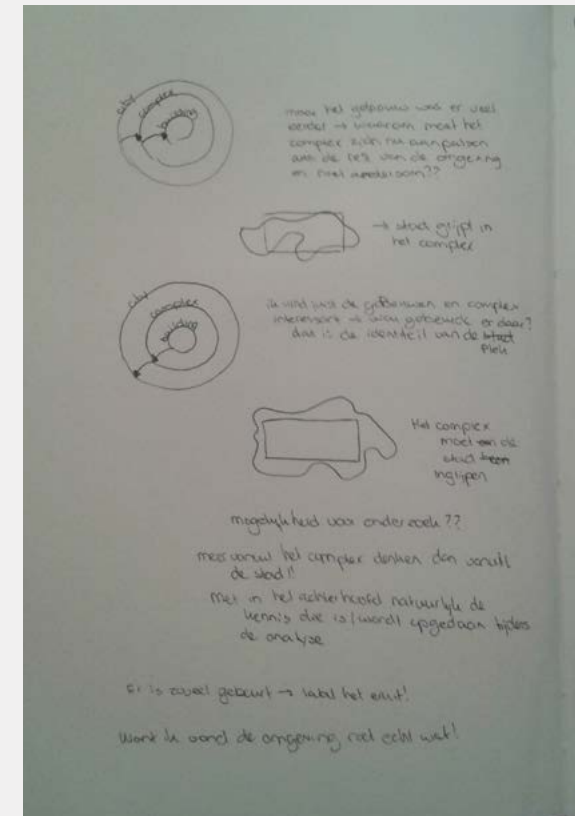 city
complex
building
maar het gebouw was er veel
eerder → waarom moet het
complex zich nu aanpassen
aan de rest van de omgeving
en niet andersom??
→ stad grijpt in
het complex
city
complex
building
ik vind juist de gebouwen en complex
interessant → wat gebeurde er daar?
dat is de identiteit van de stad
plek
Het complex
moet de
stad
ingrijpen
mogelijkheid voor onderzoek??
meer vanuit het complex denken dan vanuit
de stad!!
Met in het achterhoofd natuurlijk de
kennis die is/wordt opgedaan tijdens
de analyse
Er is zoveel gebeurt → laat het eruit!
Want ik vond de omgeving niet echt wat!